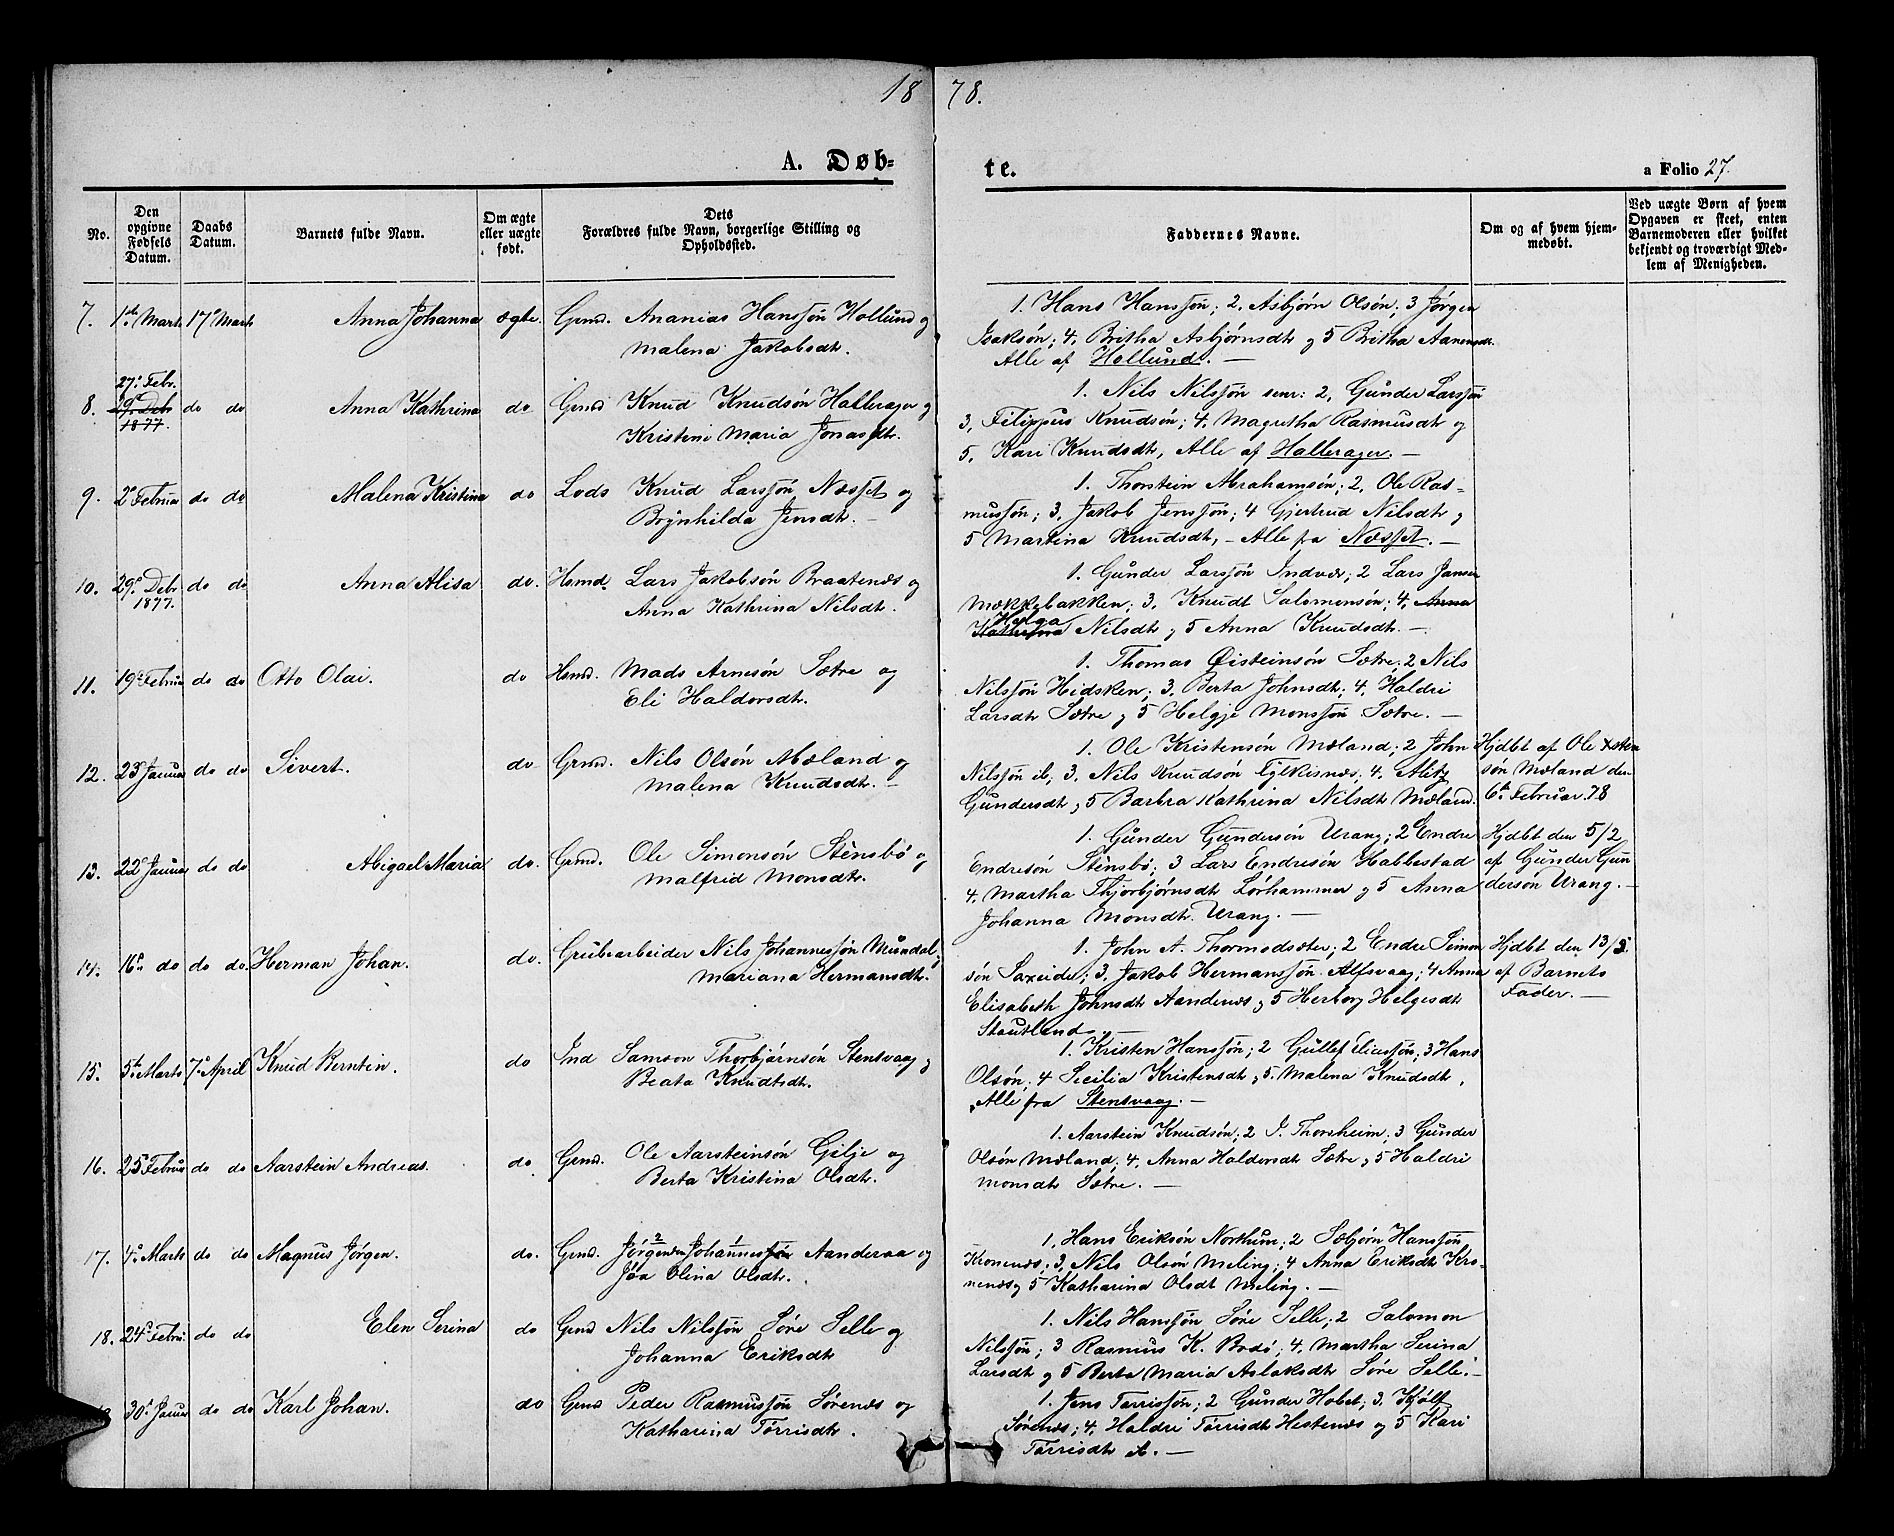 18 78.
A. Døb= te.
a Folio 27.
No.
Den opgivne Fødsels Datum.
Daabs Datum.
Barnets fulde Navn.
Om ægte eller uægte født.
Dets Forældres fulde Navn, borgerlige Stilling og Opholdssted.
Faddernes Navne.
Om og af hvem hjem- medøbt.
Ved uægte Børn af hvem Opgaven er skeet, enten Barnemoderen eller hvilket bekjendt og troværdigt Med- lem af Menigheden.
7. 1ste Marts 17de Marts Anna Johanna ægte. Grmd. Ananias Hanssøn Hollund og
Malena Jakobsdtr.
1. Hans Hanssøn; 2. Asbjørn Olsøn; 3 Jørgen
Isaksøn; 4. Britha Asbjørnsdtr og 5 Britha Aanensdtr.
Alle af Hollund. —
27de Febr.
8. 19de Debr 1877. do do Anna Kathrina do Grmd Knud Knudsøn Hallerager og
Kristine Maria Jonasdtr.
1. Nils Nilssøn senr: 2, Gunder Larssøn
3, Filippus Knudsøn; 4. Magretha Rasmusdtr og
5. Kari Knudsdtr, Alle af Hallerager. —
9. 2de Februa do do Malena Kristina do Lods Knud Larssøn Næsset og
Brynhilda Jensdtr. —
1. Thorstein Abrahamsøn; 2, Ole Ras-
mussøn; 3, Jakob Jenssøn; 4 Gjertrud Nilsdtr og
5 Martina Knudsdtr, — Alle fra Næsset. —
10. 29de Debr 1877. do do Anna Alisa do. Hsmd. Lars Jakobsøn Braatenæs og
Anna Kathrina Nilsdtr.
1. Gunder Larssøn Indvær; 2 Lars Jansen
Mækkebakken; 3. Knudt Salomonsøn; 4, Anna
Helga
Kathrina Nilsdtr og 5 Anna Knudsdtr. —
11. 19de Februa do do Otto Olai. do Hsmd. Mads Arnesøn Sætre og
Eli Haldorsdtr.
1. Thomas Øisteinsøn Sætre; 2 Nils
Nilssøn Hidsken; 3. Berta Johnsdtr; 4. Haldri
Larsdtr Sætre og 5 Helgje Monssøn Sætre. —
12. 23de Januar do do Sivert. do Grmd. Nils Olsøn Mæland og
Malena Knudsdtr. —
1. Ole Kristensøn Mæland; 2 John
Nilssøn ib; 3. Nils Knudsøn Fylkisnæs; 4. Alitz
Gundersdtr og 5 Barbra Kathrina Nilsdtr Mæland.
Hjdbt af Ole Xsten
søn Mæland den
6te Februar. 78
13. 22de Januar do do Abigael Maria do. Grmd. Ole Simonsøn Stensbø og
Malfrid Monsdtr.
1. Gunder Gundersøn Urang; 2 Endre
Endresøn Stensbø; 3 Lars Endresøn Habbestad
4. Martha Thjorbjørnsdtr Lørhammer og 5 Anna
Johanna Monsdtr. Urang. —
Hjdbt den 5/2
af Gunder Gun
dersøn Urang. —
14. 16de do do do. Herman Johan. do. Grubearbeider Nils Johannessøn Mundal og
Mariana Hermansdtr.
1. John A. Thormodsæter; 2 Endre Simon
søn Saxeide; 3. Jakob Hermanssøn Alfsvaag; 4 Anna
Elisabeth Johnsdtr Aandenæs og 5 Herborg Helgesdtr
Stautland. —
Hjdbt den 13/3.
af Barnets
Fader. —
15. 5te Marts 7de April Knud Berntin. do Ind Samson Thorbjørnsøn Stensvaag og
Beata Knudtsdtr.
1. Kristen Hanssøn; 2 Gullef Eliassøn; 3 Hans
Olsøn; 4 Secilia Kristensdtr og 5. Malena Knudsdtr,
Alle fra Stensvaag. —
16. 25de Februa do do Aarstein Andreas. do. Grmd. Ole Aarsteinsøn Gilje og
Berta Kristina Olsdtr.
1. Aarstein Knudsøn; 2 J. Thorsheim; 3 Gunder
Olsøn Mæland; 4, Anna Haldorsdtr Sætre og 5 Haldri
Monsdtr Sætre. —
17. 4de Marts do do Magnus Jørgen. do. Grmd. Jørgensen Johannes Aanderaa og
Jøa Olina Olsdtr.
1, Hans Eriksøn Northun; 2 Sæbjørn Hanssøn
Kronenæs; 3, Nils Olsøn Meling; 4 Anna Eriksdtr Kro-
nenæs og 5 Katharina Olsdt Meling. —
18. 24de Febru. do do Elen Serina do Grmd Nils Nilssøn Søre Selle og
Johanna Eriksdtr
1. Nils Hanssøn Søre Selle; 2 Salomon
Nilssøn; 3 Rasmus K. Bodø; 4, Martha Serina
Larsdtr og 5 Berta Maria Aslaksdtr Søre Selle. —
30de Januar do do Karl Johan. do Grmd Peder Rasmussøn Sørenæs og
Katharina Tørrisdtr.
1. Jens Tørrissøn; 2 Gunder Habet; 3. Kjølf
Sørenæs; 4, Haldri Tørrisdtr Hestenæs og 5 Kari
Tørrisdtr ib. —